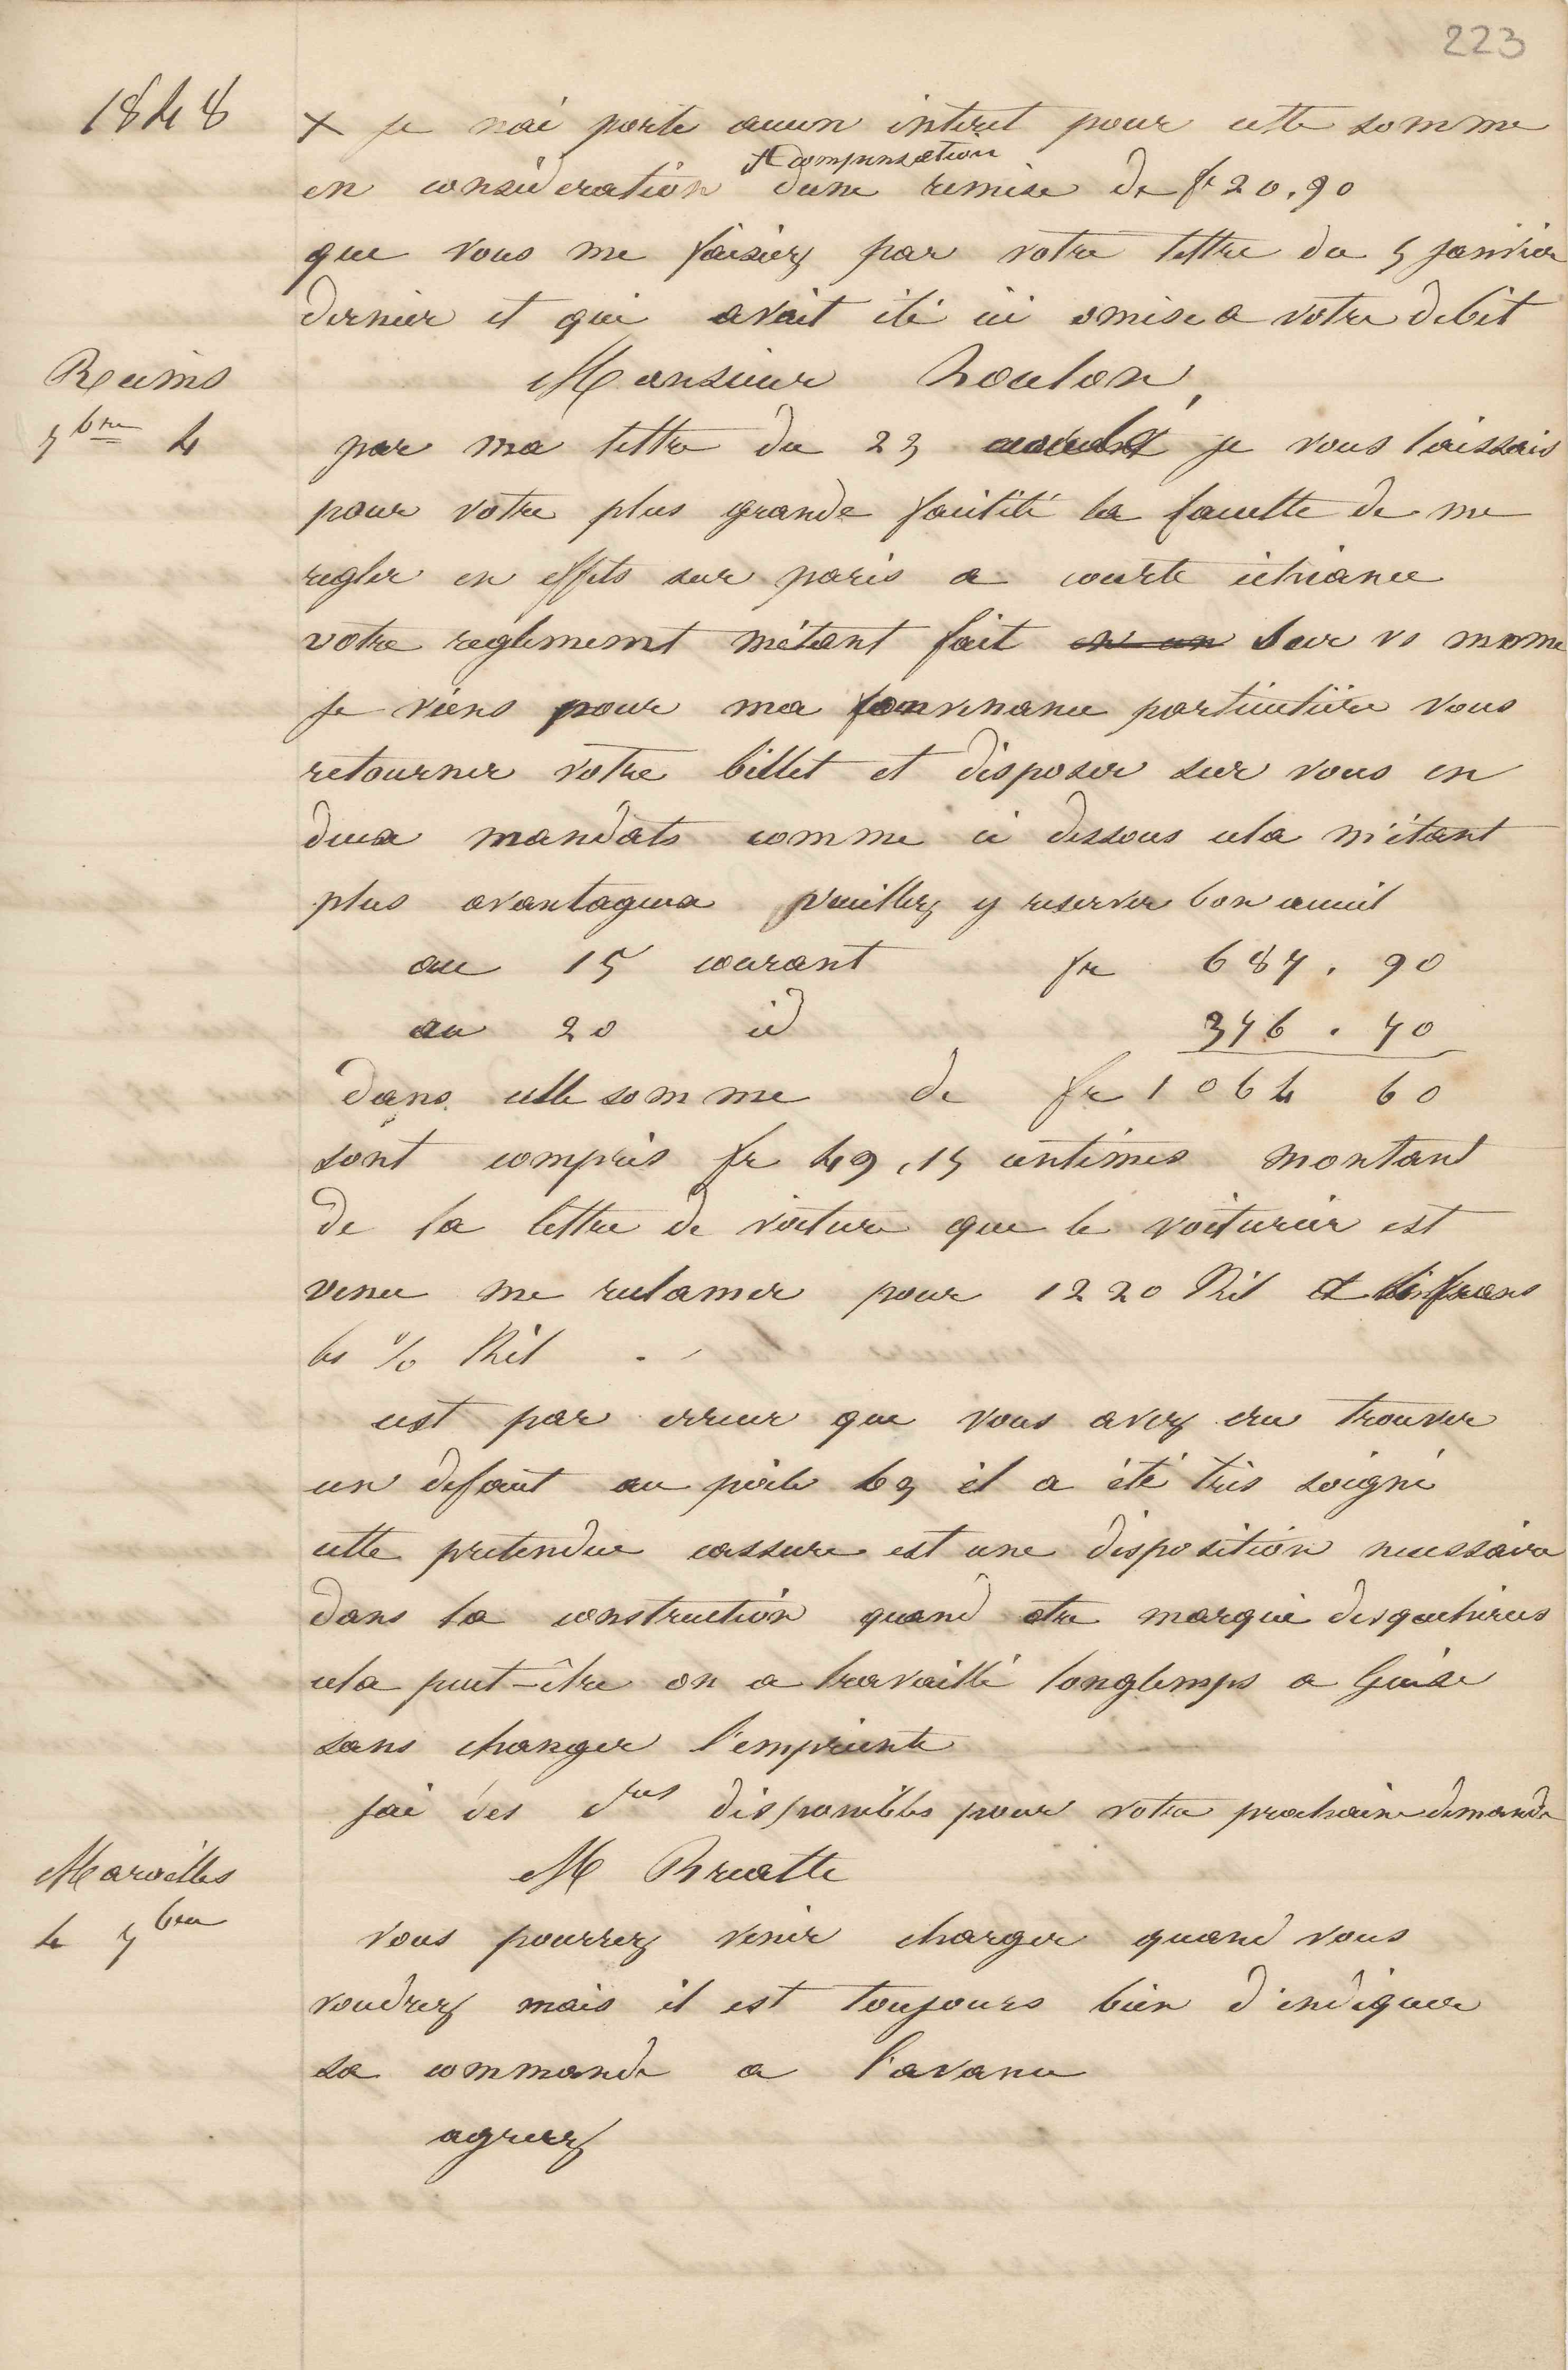 223
1848
× je n'ai porté aucun interet pour cette somme
× compensation
en consideration dune remise de fr 20.90
que vous me faisiez par votre lettre du 5 janvier
dernier et qui avait été ici omise a votre debit
Reims
7bre 4
Monsieur Houlon,
par ma lettre du 23 aoult je vous laissais
pour votre plus grande facilité la faculte de me
regler en effets sur paris a courte échéance
votre reglement m'étant fait en un sur vs meme
je viens pour ma convenance particulière vous
retourner votre billet et disposer sur vous en
deux mandats comme ci dessous cela m'étant
plus avantageux veuillez y reserver bon acueil
au 15 courant fr 687.90
au 20 id 376.70
dans cette somme de fr 1064 60
sont compris fr 49.15 centimes montant
de la lettre de voiture que le voiturier est
venu me reclamer pour 1220 Kil et francs
les % Kil
cest par erreur que vous avez cru trouver
un defaut au poele 63 il a été très soigné
cette pretendue cassure est une disposition necessaire
dans la construction quand otre marqué
cela peut-être on a travaillé longtemps a Guise
sans changer l'empriente
jai des disponibles pour votre prochaine demande
Maroilles
4 7bre
M Bruatte
vous pourrez venir charger quand vous
voudrez mais il est toujours bien d'indiquer
sa commande a l'avance
agreez